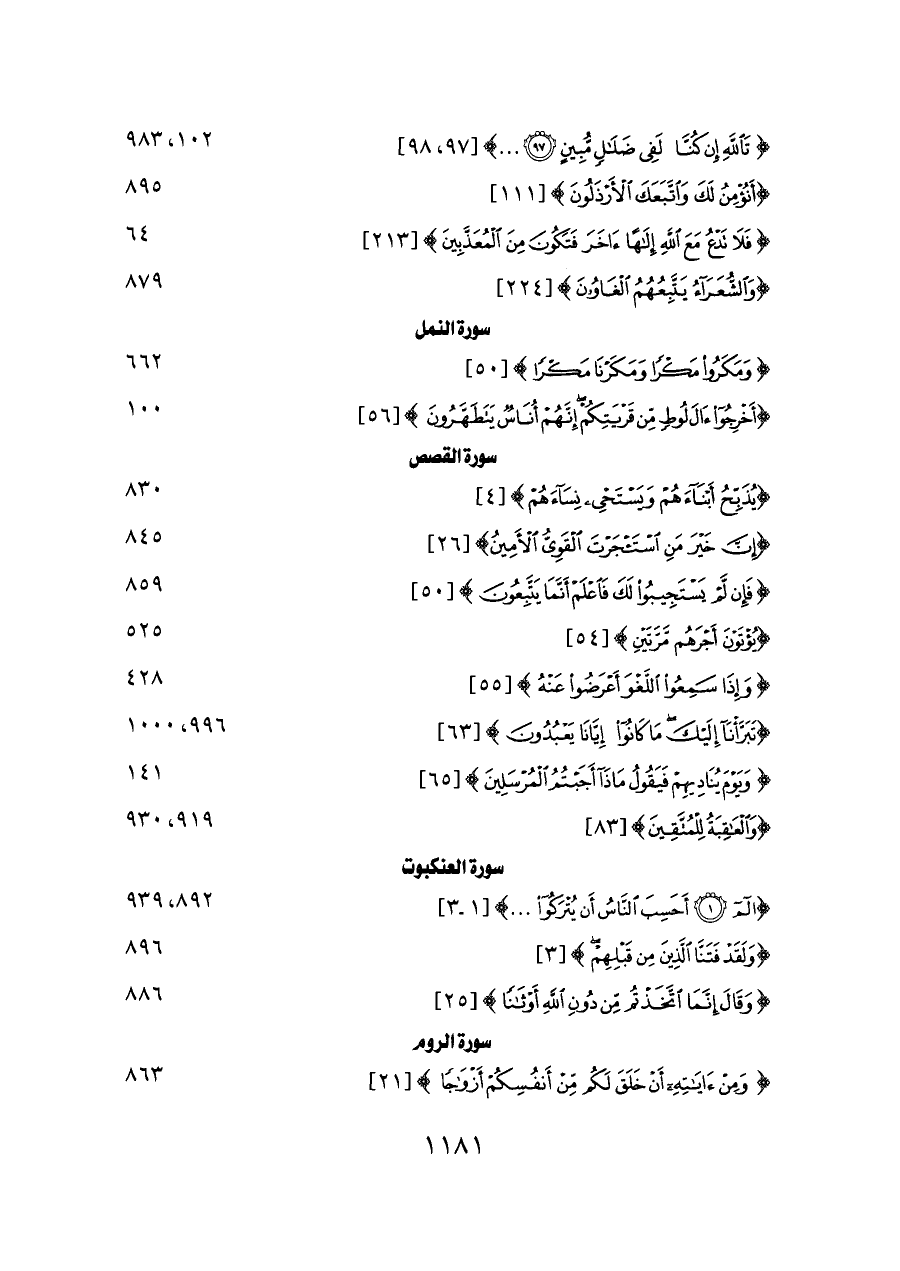 ﴿ تَٱللَّهِ إِن كُنَّا لَفِى ضَلَـٰلٍ مُّبِينٍ ٩٧ ...﴾ [٩٧، ٩٨] ١٠٢، ٩٨٣
﴿أَنُؤْمِنُ لَكَ وَٱتَّبَعَكَ ٱلْأَرْذَلُونَ ﴾ [١١١] ٨٩٥
﴿ فَلَا نَدْعُ مَعَ ٱللَّهِ إِلَـٰهًا ءَاخَرَ فَتَكُونَ مِنَ ٱلْمُعَذَّبِينَ ﴾ [٢١٣] ٦٤
﴿وَٱلشُّعَرَآءُ يَتَّبِعُهُمُ ٱلْغَاوُۥنَ ﴾ [٢٢٤] ٨٧٩
سورة النمل
﴿ وَمَكَرُوا۟ مَكْرًا وَمَكَرْنَا مَكْرًا ﴾ [٥٠] ٦٦٢
﴿أَخْرِجُوٓا۟ ءَالَ لُوطٍ مِّن قَرْيَتِكُمْ ۖ إِنَّهُمْ أُنَاسٌ يَتَطَهَّرُونَ ﴾ [٥٦] ١٠٠
سورة القصص
﴿يُذَبِّحُ أَبْنَآءَهُمْ وَيَسْتَحْىِۦ نِسَآءَهُمْ ﴾ [٤] ٨٣٠
﴿إِنَّ خَيْرَ مَنِ ٱسْتَـْٔجَرْتَ ٱلْقَوِىُّ ٱلْأَمِينُ﴾ [٢٦] ٨٤٥
﴿ فَإِن لَّمْ يَسْتَجِيبُوا۟ لَكَ فَٱعْلَمْ أَنَّمَا يَتَّبِعُونَ ﴾ [٥٠] ٨٥٩
﴿يُؤْتَوْنَ أَجْرَهُم مَّرَّتَيْنِ ﴾ [٥٤] ٥٢٥
﴿ وَإِذَا سَمِعُوا۟ ٱللَّغْوَ أَعْرَضُوا۟ عَنْهُ ﴾ [٥٥] ٤٢٨
﴿تَبَرَّأْنَآ إِلَيْكَ ۖ مَا كَانُوٓا۟ إِيَّانَا يَعْبُدُونَ ﴾ [٦٣] ٩٩٦، ١٠٠٠
﴿ وَيَوْمَ يُنَادِيهِمْ فَيَقُولُ مَاذَآ أَجَبْتُمُ ٱلْمُرْسَلِينَ ﴾ [٦٥] ١٤١
﴿وَٱلْعَـٰقِبَةُ لِلْمُتَّقِينَ﴾ [٨٣] ٩١٩، ٩٣٠
سورة العنكبوت
﴿الٓمٓ ١ أَحَسِبَ ٱلنَّاسُ أَن يُتْرَكُوٓا۟ ...﴾ [١ـ٣] ٨٩٢، ٩٣٩
﴿وَلَقَدْ فَتَنَّا ٱلَّذِينَ مِن قَبْلِهِمْ ۖ ﴾ [٣] ٨٩٦
﴿ وَقَالَ إِنَّمَا ٱتَّخَذْتُم مِّن دُونِ ٱللَّهِ أَوْثَـٰنًا ﴾ [٢٥] ٨٨٦
سورة الروم
﴿ وَمِنْ ءَايَـٰتِهِۦٓ أَنْ خَلَقَ لَكُم مِّنْ أَنفُسِكُمْ أَزْوَٰجًا ﴾ [٢١] ٨٦٣
١١٨١